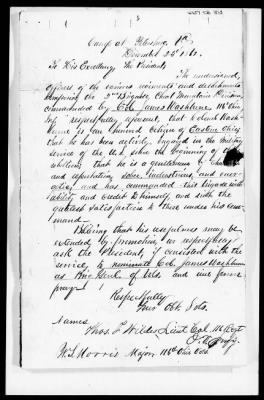 Camp at Petersburg Va
December 26th 186
To His Excellency The President
The undersigned,
officers of the various regiments and detachments
composing the 2nd Brigade
commanded by Col. James Washburn 116th Ohio
Inf. respectfully represent, that Col Wash
burn is an honored citizen of Eastern Ohio
that he has been actively engaged in the military
service of the U.S. since the beginning of
rebellion; that he is a gentleman of
and reputation sober, industrious, and ener-
getic, and has commanded this brigade with
ability and credit to himself, and with the
satisfaction to those under his com-
mand.
Believing that his usefulness may be
extended by promotion, we respectfully
ask the President, if consistent with the
service, to nominate Col. James Washburn
as Brig Genl. of Vols. and we
pray
Respectfully
Your Obt Svts.
Names
Thos. L. Wildes Lieut Col. 116 Regt
W. L. Morris Major 116th Ohio Vols